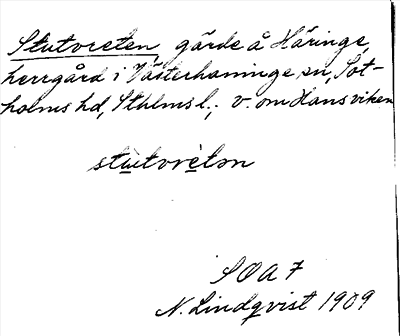 Stutvreten gärde å Häringe,
herrgård i Västerhaninge sn, Sot-
holms hd, Sthlms l.; v. om Hansviken
stutvretən
SOA 7
N. Lindqvist 1909